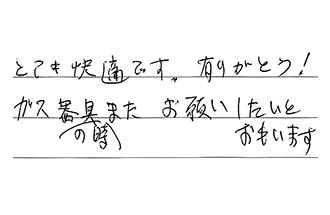 とても快適です。有りがとう！
ガス器具の時また お願いしたいと
おもいます